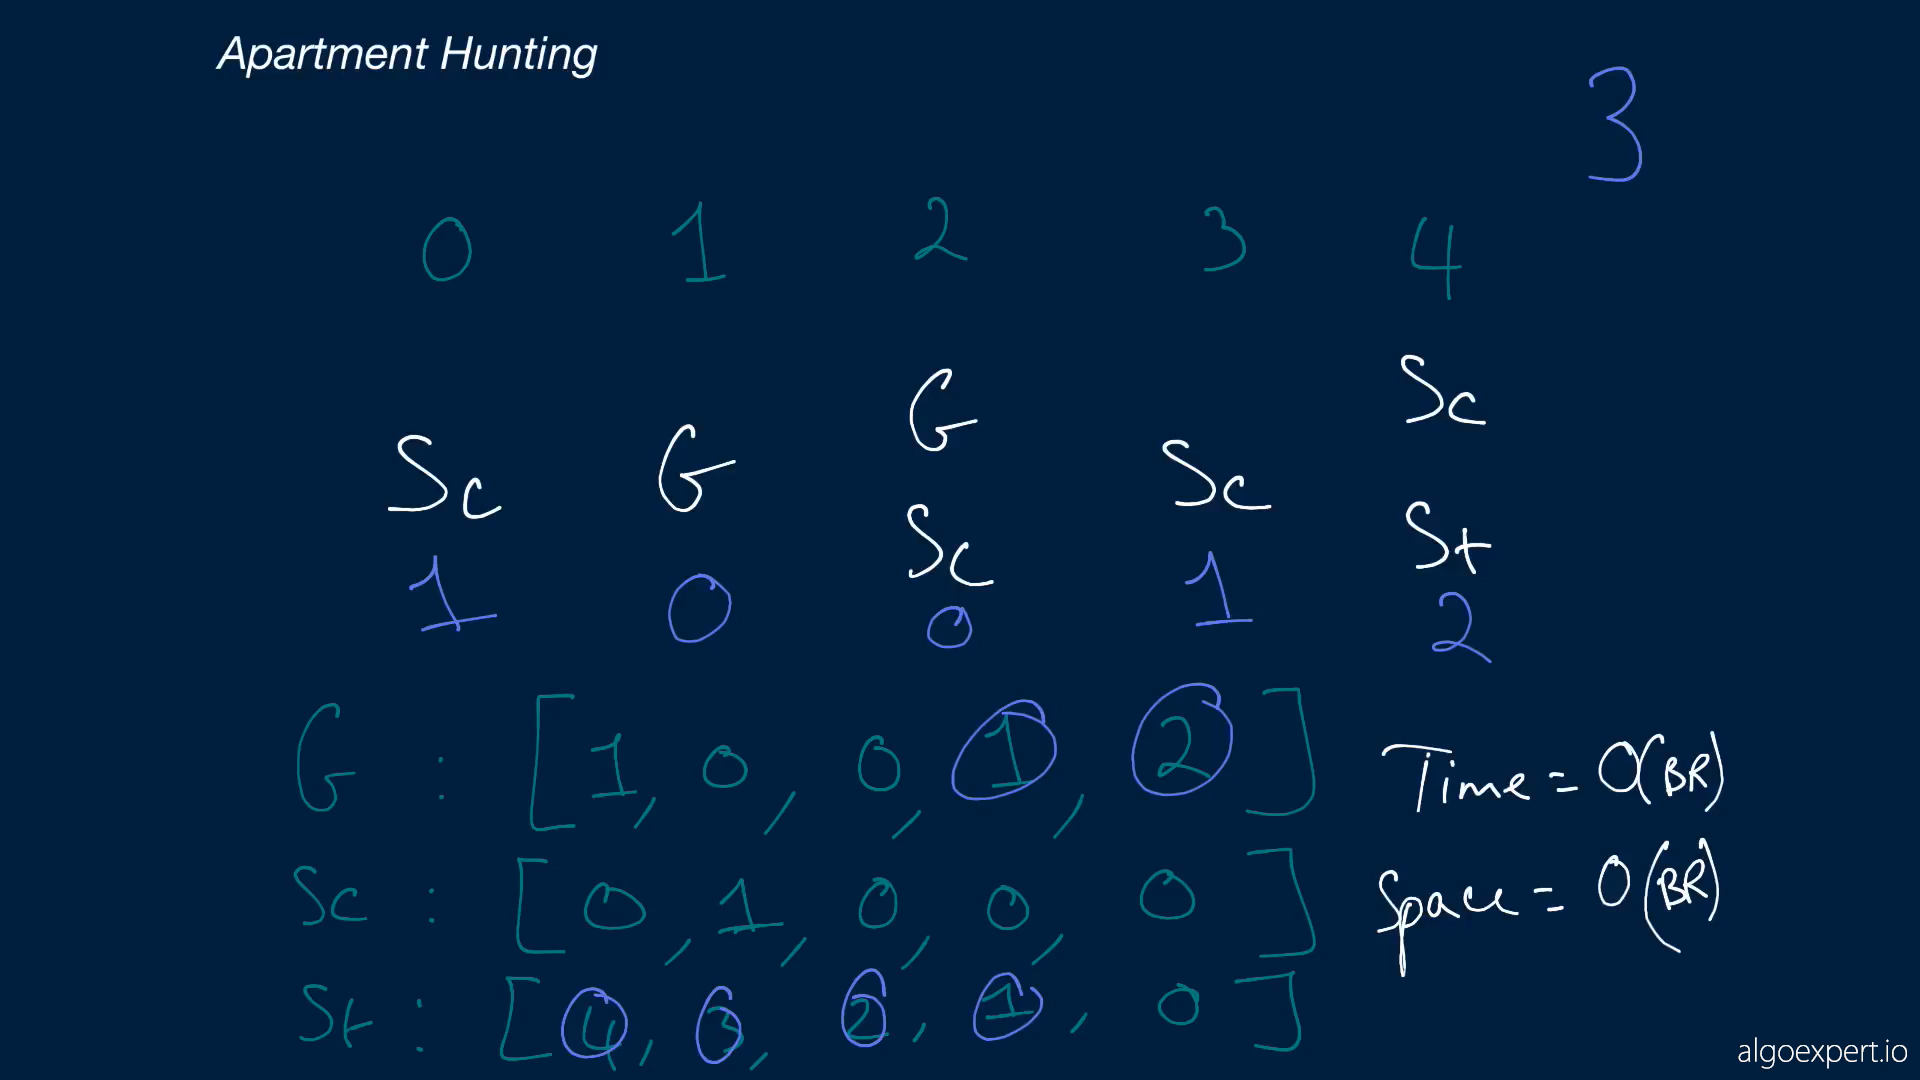 Apartment Hunting
3
0 1 2 3 4
Sc G G Sc Sc
Sc St
1 0 0 1 2
G : [1, 0, 0, 1, 2]
Sc : [0, 1, 0, 0, 0]
St : [4, 3, 2, 1, 0]
Time = O(BR)
Space = O(BR)
algoexpert.io